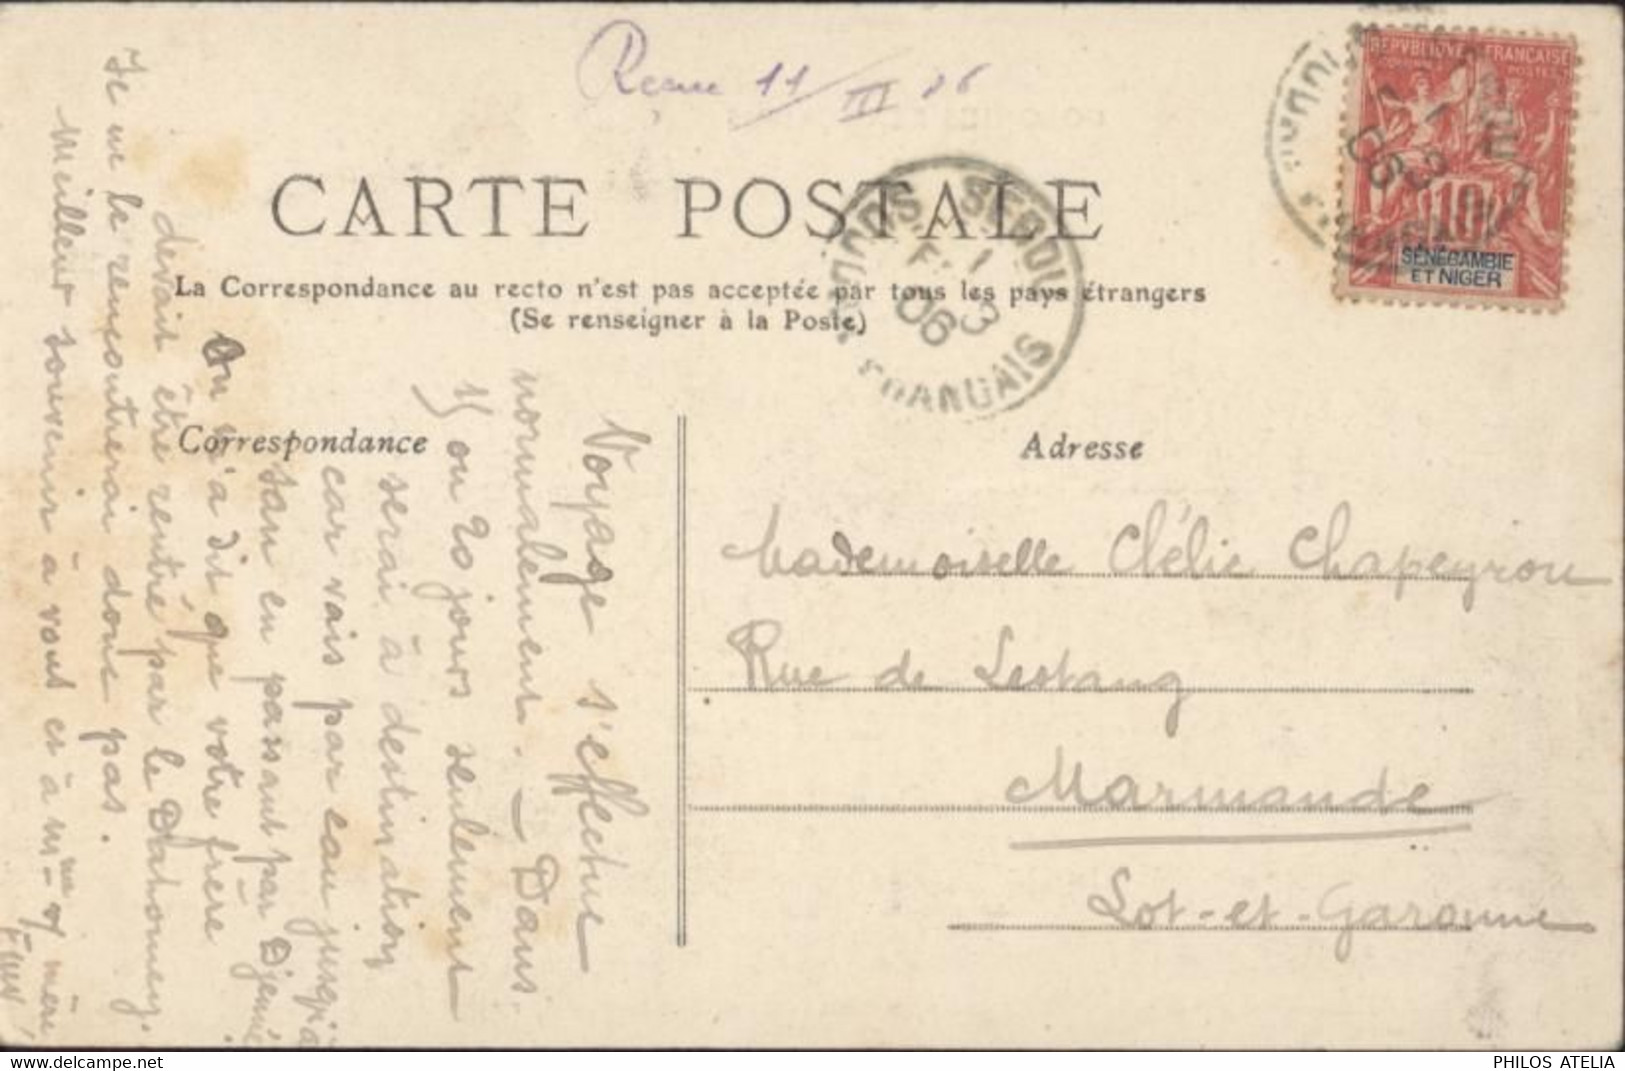 Reçue 11/III 06
CARTE POSTALE
La Correspondance au recto n'est pas acceptée par tous les pays étrangers
(Se renseigner à la Poste)
Correspondance
Adresse
REPVBLIQVE FRANÇAISE
10
SÉNÉGAMBIE
ET NIGER
SÉGOU
1
3
06
FRANÇAIS
Mademoiselle Clélie Chapeyrou
Rue de Lestang
Marmande
Lot-et-Garonne
Voyage s'effectue
normalement. — Dans
15 ou 20 jours seulement
serai à destination
car vais par eau jusqu'à
San en passant par Djenné.
On m'a dit que votre frère
devait être rentré par le Dahomey.
Je ne le rencontrerai donc pas.
Meilleur souvenir à vous et à Mme votre mère
delcampe.net
PHILOS ATELIA